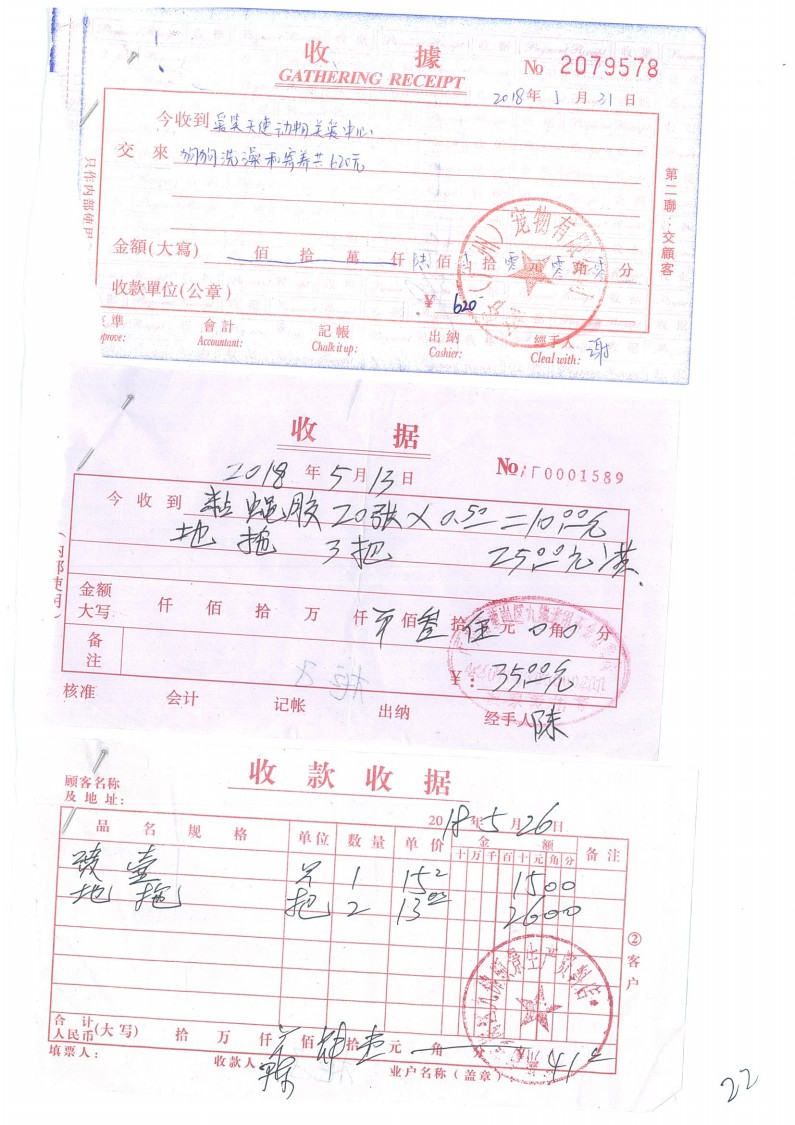 收 據
GATHERING RECEIPT
No 2079578
2018年 1 月 31 日
今收到 天使动物关爱中心
交 來 狗狗洗澡和寄养共620元
金額(大寫) 佰 拾 萬 仟 陆 佰 拾 零 元 零 角 零 分
收款單位(公章)
¥ 620
宠物有限
第二聯:交顧客
只作內部使用
會計 記帳 出納 經手人 谢
prove: Accountant: Chalk it up: Cashier: Cleal with:
收 据
2018 年 5 月 13 日
No 0001589
今 收 到 黏蝇胶 20张 × 0.50 = 10.00元
地 拖 3把 25.00元
金额
大写 仟 佰 拾 万 仟 佰 叁 拾 伍 元 0 角 0 分
备
注
¥: 35.00元
核准 会计 记帐 出纳 经手人 陈
(内部使用)
收 款 收 据
顾客名称
及 地 址:
2018 年 5 月 26 日
品 名 规 格 单位 数 量 单 价 金 额 备 注
十 万 千 百 十 元 角 分
壶 1 15 1500
地 拖 把 2 13 2600
②客户
合 计
人民币(大写) 拾 万 仟 佰 肆 拾 壹 元 角 分 ¥ 41
填票人: 收款人 业户名称(盖章)
22